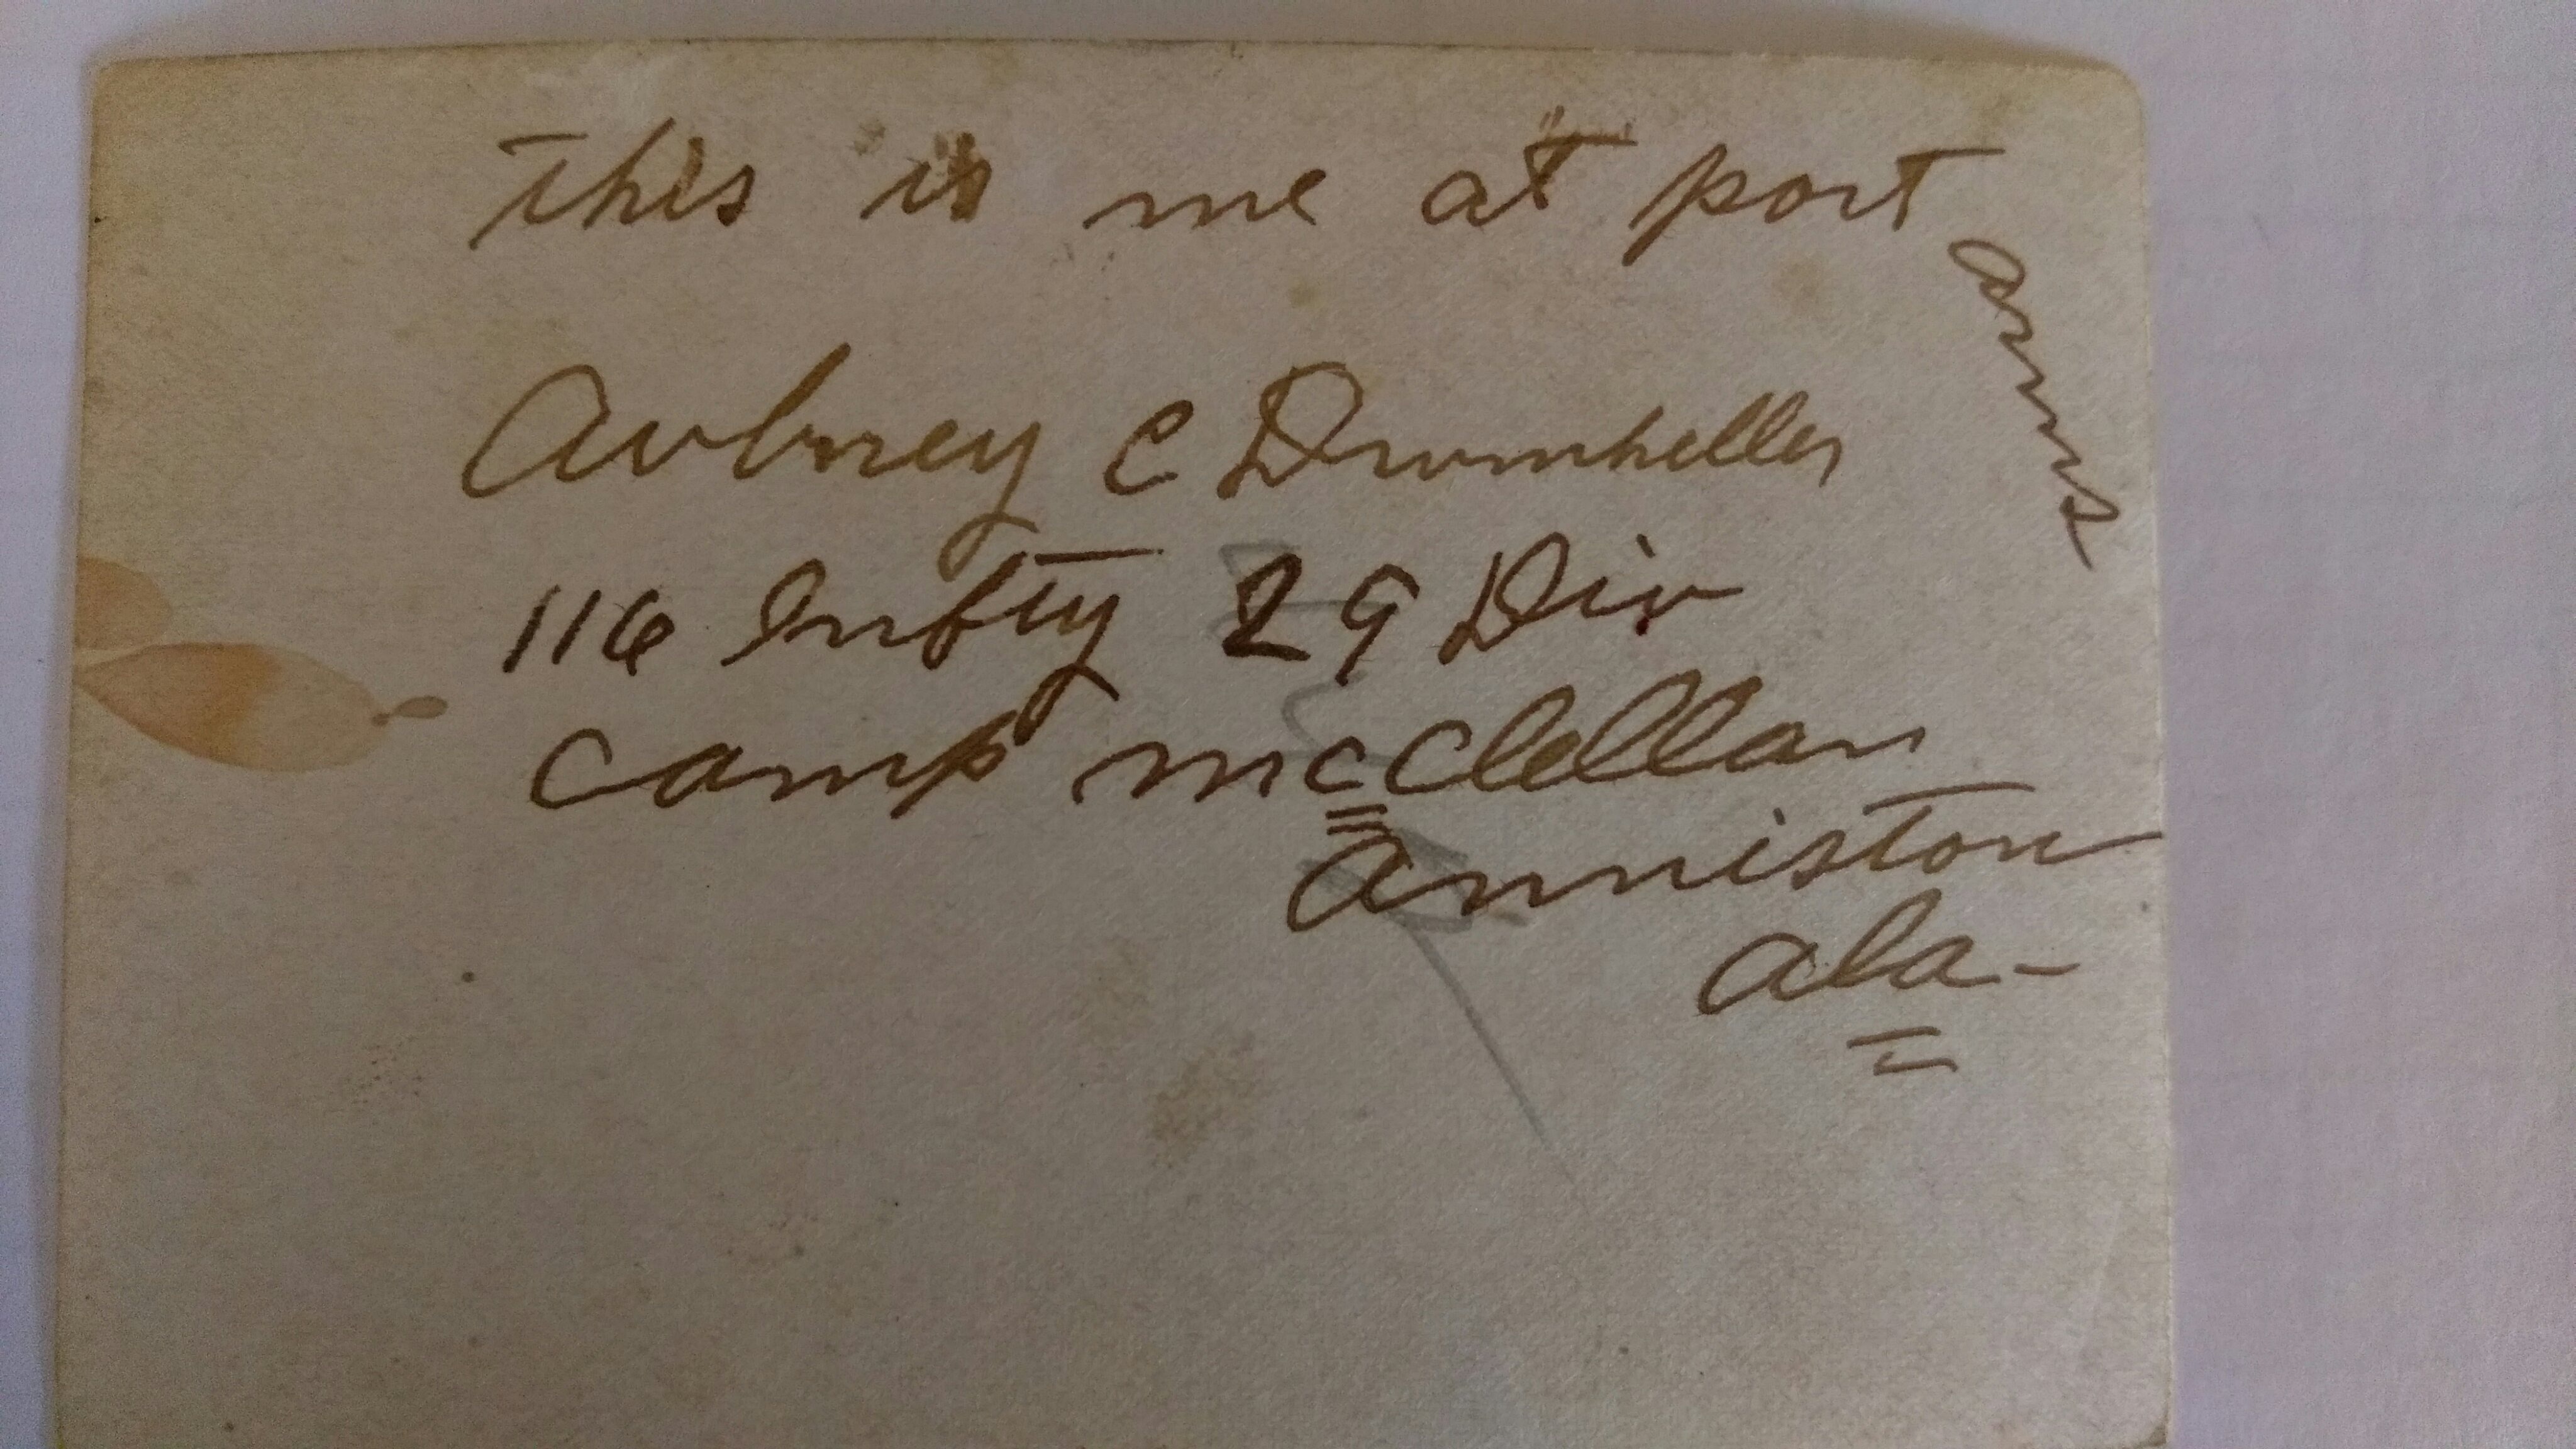 This is me at port
arms
Aubrey C Drumheller
116 Infty 29 Div
Camp McClellan
Anniston
Ala-